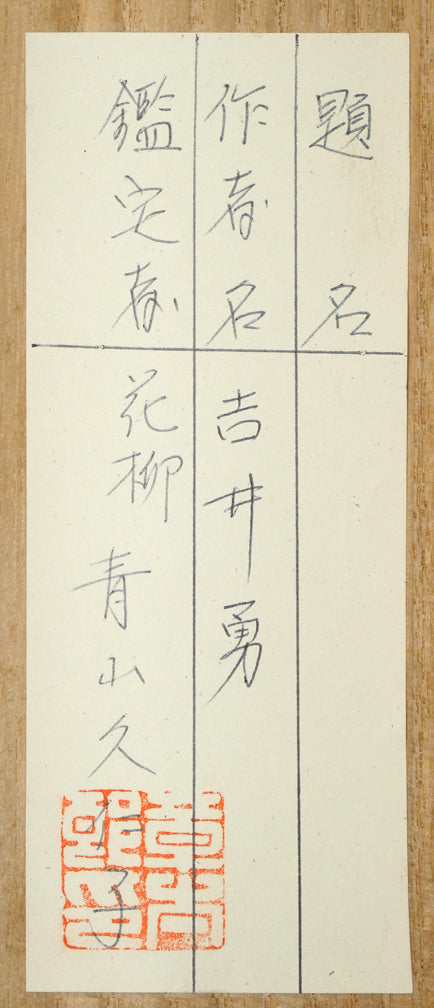 題名
作者名 吉井勇
鑑定者 花柳 青山久子